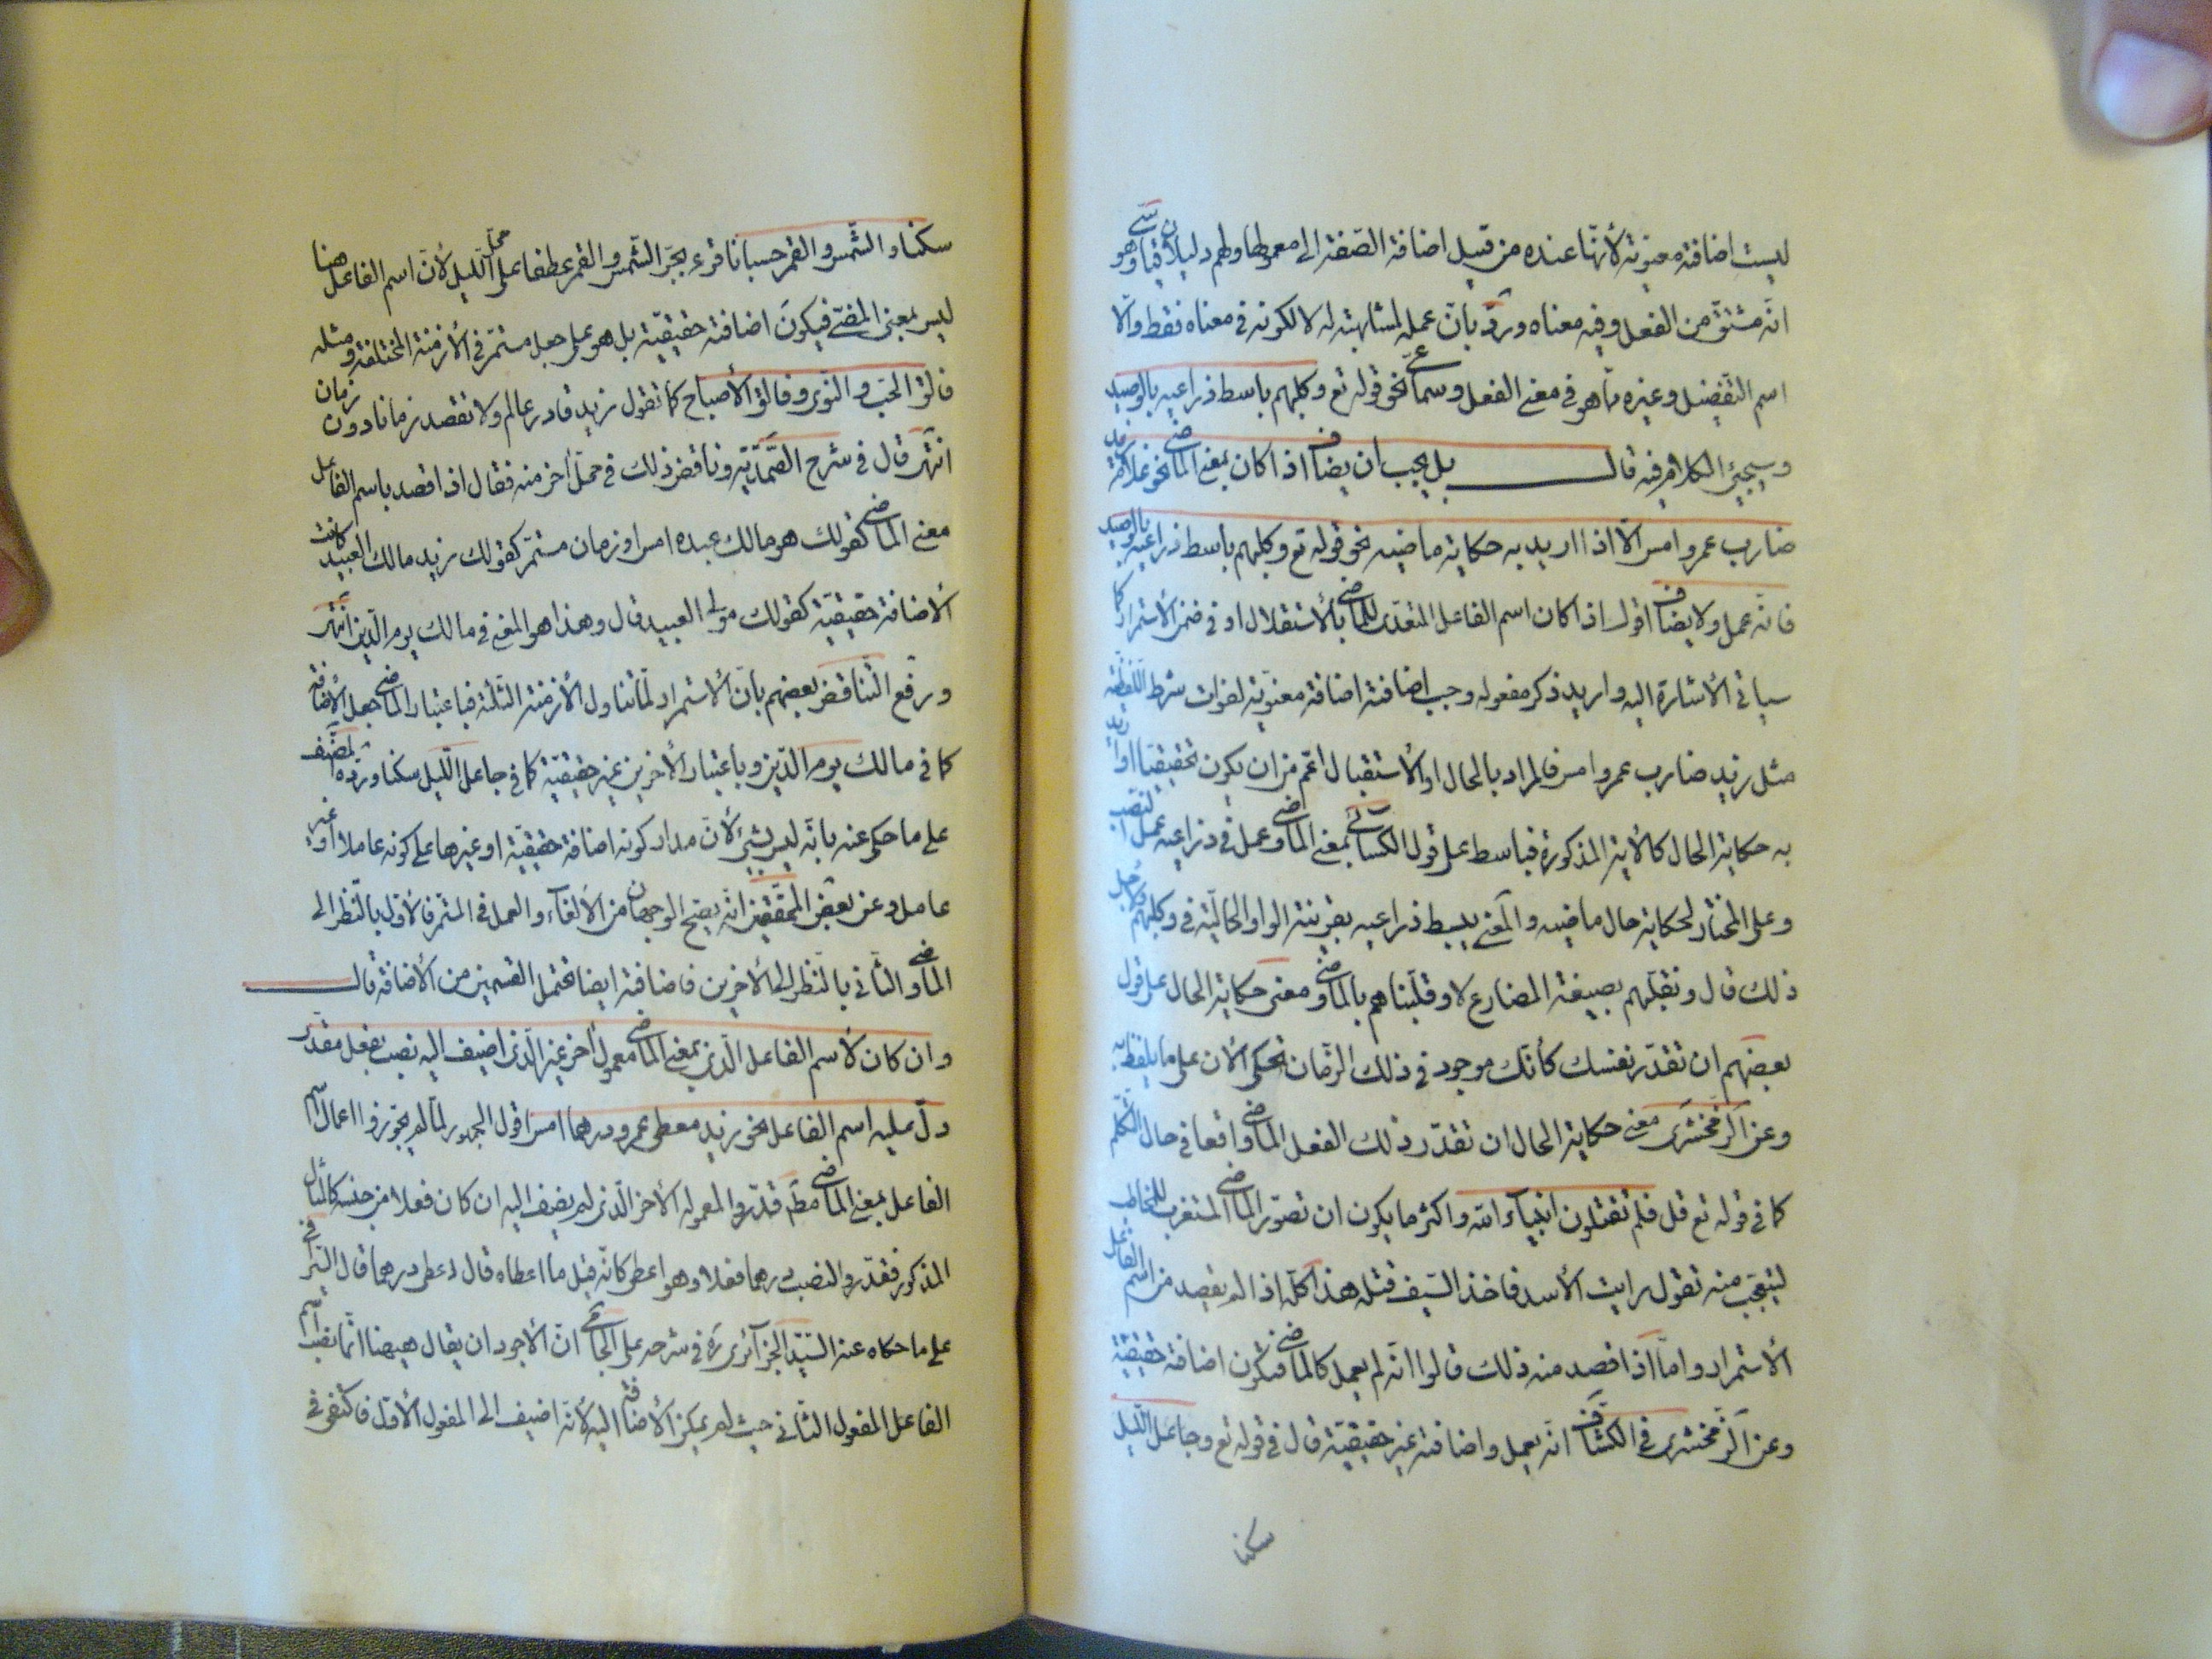 ليست اضافته معنوية لأنها عنده من قبيل اضافة الصفة الى معمولها ولهم دليلان قياسى وهو
انه مشتق من الفعل وفيه معناه ورد بان عمله لمشابهته له لا لكونه فى معناه فقط والا
اسم التفضيل وغيره مما هو فى معنى الفعل وسماعى نحو قوله تع وكلبهم باسط ذراعيه بالوصيد
وسيجيئ الكلام فيه قال بل يجب ان يضاف اذا كان بمعنى الماضى نحو زيد غلامه
ضارب عمرو امس الا اذا اريد به حكاية ماضيه نحو قوله تع وكلبهم باسط ذراعيه بالوصيد
فانه عمل ولا يضاف اقول اذا كان اسم الفاعل المتعدى للماضى بالأستقلال او فى ضمن الأستمرار كما
سيأتى الأشارة اليه واريد ذكر مفعوله وجب اضافته اضافة معنوية لفوات شرط اللفظية
مثل زيد ضارب عمرو امس فالمراد بالحال او الأستقبال اعم من ان يكون تحقيقيا او اريد
به حكاية الحال كالأية المذكورة فباسط على قول الكسائى بمعنى الماضى وعمل فى ذراعيه عمل النصب
وعلى المختار لحكاية حال ماضيه والمعنى يبسط ذراعيه بقرينة الواو الحالية فى وكلبهم ولأجل
ذلك قال ونقلبهم بصيغة المضارع لا وقلبناهم بالماضى ومعنى حكاية الحال على قول
بعضهم ان تقدر نفسك كأنك موجود فى ذلك الزمان تحكى الأن على ما يلفظ به
وعن الزمخشرى معنى حكاية الحال ان تقدر ذلك الفعل الماضى واقعا فى حال التكلم
كما فى قوله تع قل فلم تقتلون انبياء الله واكثر ما يكون ان تصور الماضى المستغرب للمخاطب
ليتعجب منه تقول رايت الأسد فاخذ السيف فقتله هذا كله اذا لم يقصد من اسم الفاعل
الأستمرار واما اذا قصد منه ذلك قالوا انه لم يعمل كالماضى فيكون اضافته حقيقية
وعن الزمخشرى فى الكشاف انه يعمل واضافته غير حقيقية قال فى قوله تع وجاعل الليل
سكنا
سكنا والشمس والقمر حسبانا قرء بجر الشمس والقمر عطفا على محل الليل لأن اسم الفاعل هنا
ليس بمعنى المضى فيكون اضافته حقيقية بل هو على جعل مستمر فى الأزمنة المختلفة ومثله
فالق الحب والنوى وفالق الأصباح كما تقول زيد قادر عالم ولا تقصد زمانا دون زمان
انتهى قال فى شرح الصمدية وناقض ذلك فى محل أخر منه فقال اذا قصد باسم الفاعل
معنى الماضى كقولك هو مالك عبده امس او زمان مستمر كقولك زيد مالك العبيد كانت
الأضافة حقيقية كقولك مولى العبيد قال وهذا هو المعنى فى مالك يوم الدين انتهى
ورفع التناقض بعضهم بان الأستمرار لما تناول الأزمنة الثلثة فباعتبار الماضى جعل الأضافة
كما فى مالك يوم الدين وباعتبار الأخرين غير حقيقية كما فى جاعل الليل سكنا ورده المصنف
على ما حكى عنه بانه ليس بشيئ لأن مدار كونه اضافة حقيقية او غيرها على كونه عاملا او غير
عامل وعن بعض المحققين انه يصح الوجهان من الألغاء والعمل فى المستمر فالأول بالنظر الى
الماضى والثانى بالنظر الى الأخرين فاضافته ايضا تحتمل القسمين من الأضافة قال
وان كان لأسم الفاعل الذى بمعنى الماضى معمول أخر غير الذى اضيف اليه نصب بفعل مقدر
دل عليه اسم الفاعل نحو زيد معطى عمرو درهما امس اقول الجمهور لما لم يجوزوا اعمال اسم
الفاعل بمعنى الماضى مطم قدروا لمعموله الأخر الذى لم يضف اليه ان كان فعلا من جنسه كالمثال
المذكور فقدروا لنصب درهما فعلا وهو اعطى كانه قيل ما اعطاه قال اعطى درهما قال السيرافى
على ما حكاه عنه السيد الجزآئرى ره فى شرحه على الجامى ان الأجود ان يقال ههنا انما نصب اسم
الفاعل المفعول الثانى حيث لم يمكن الأضافة اليه لأنه اضيف الى المفعول الأول فاكتفى فى